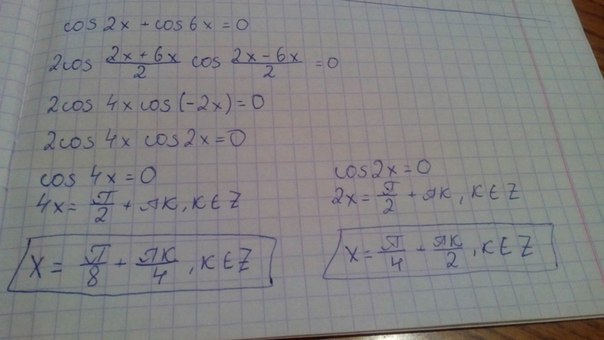 cos 2x + cos 6x = 0
2cos (2x + 6x)/2 cos (2x - 6x)/2 = 0
2cos 4x cos(-2x) = 0
2cos 4x cos 2x = 0
cos 4x = 0
4x = π/2 + πк, к∈Z
x = π/8 + πк/4, к∈Z
cos 2x = 0
2x = π/2 + πк, к∈Z
x = π/4 + πк/2, к∈Z